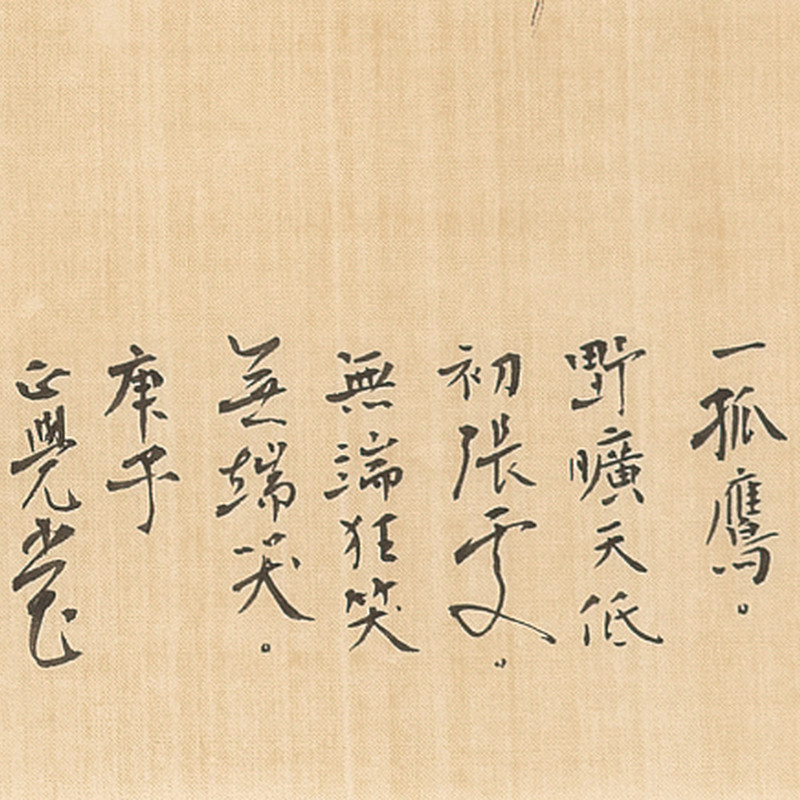 一孤鷹。
野曠天低
初張。
無端狂笑
無端哭。
庚子
正覺堂